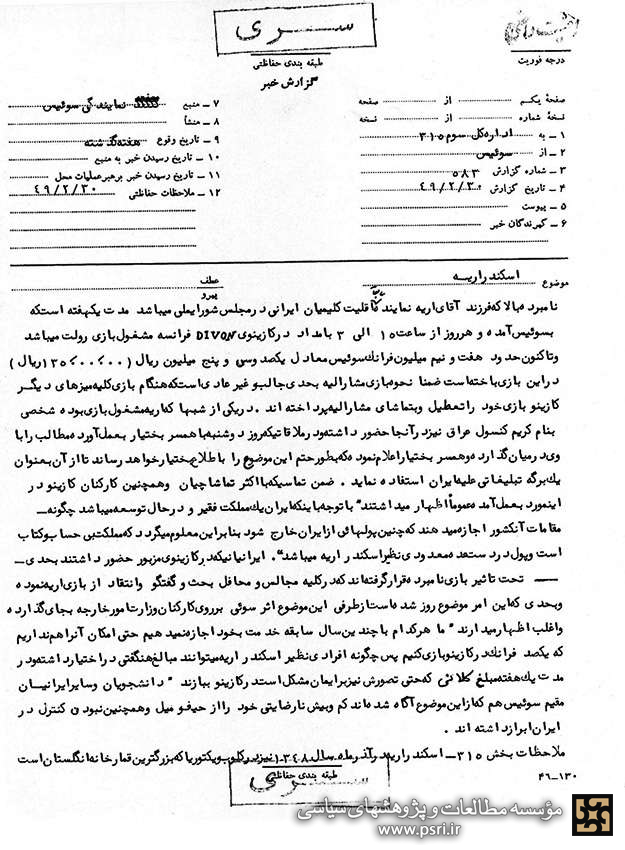 سری
طبقه بندی حفاظتی
گزارش خبر
درجه فوریت
صفحهٔ یکم از صفحه
نسخهٔ شماره از نسخه
۱ - به اداره کل سوم ۳۱۵
۲ - از سوئیس
۳ - شماره گزارش ۵۸۳
۴ - تاریخ گزارش ۴۹/۲/۳۰
۵ - پیوست
۶ - گیرندگان خبر
۷ - منبع نمایندگی سوئیس
۸ - منشأ
۹ - تاریخ وقوع هفته گذشته
۱۰ - تاریخ رسیدن خبر به منبع
۱۱ - تاریخ رسیدن خبر برهبر عملیات محل
۱۲ - ملاحظات حفاظتی ۴۹/۲/۳۰
موضوع اسکندر اریه
عطف
پیرو
نامبرده بالا که فرزند آقای اریه نماینده اقلیت کلیمیان ایرانی در مجلس شورایملی میباشد مدت یکهفته است که
بسوئیس آمده و هر روز از ساعت ۱۵ الی ۳ بامداد در کازینوی DIVON فرانسه مشغول بازی رولت میباشد
و تاکنون حدود هفت و نیم میلیون فرانک سوئیس معادل یکصد و سی و پنج میلیون ریال (۱۳۵،۰۰۰،۰۰۰ ریال)
در این بازی باخته است ضمنا نحوه بازی مشارالیه بحدی جالب و غیر عادی است که هنگام بازی کلیه میزهای دیگر
کازینو بازی خود را تعطیل و بتماشای مشارالیه پرداخته اند . در یکی از شبها که اریه مشغول بازی بوده شخصی
بنام کریم کنسول عراق نیز در آنجا حضور داشته و در ملاقاتیکه روز دوشنبه با همسر بختیار بعمل آورده مطالب را با
وی در میان گذارده و همسر بختیار اعلام نموده که بطور حتم این موضوع را باطلاع بختیار خواهد رساند تا از آن بعنوان
یک برگه تبلیغاتی علیه ایران استفاده نماید . ضمن تماسیکه با اکثر تماشاچیان و همچنین کارکنان کازینو در
اینمورد بعمل آمده عموماً اظهار میداشتند" با توجه باینکه ایران یک مملکت فقیر و در حال توسعه میباشد چگونه
مقامات آنکشور اجازه میدهند که چنین پولهائی از ایران خارج شود بنابراین معلوم میگردد که مملکت بی حساب و کتاب
است و پول در دست عده معدودی نظیر اسکندر اریه میباشد" . ایرانیانیکه در کازینوی مزبور حضور داشتند بحدی
تحت تاثیر بازی نامبرده قرار گرفته اند که در کلیه مجالس و محافل بحث و گفتگو و انتقاد از بازی اریه نموده
و بحدی که این امر موضوع روز شده است از طرفی این موضوع اثر سوئی بر روی کارکنان وزارت امور خارجه بجای گذارده
و اغلب اظهار میدارند " ما هر کدام با چندین سال سابقه خدمت بخود اجازه نمیدهیم حتی امکان آنرا هم نداریم
که یکصد فرانک در کازینو بازی کنیم پس چگونه افرادی نظیر اسکندر اریه میتوانند مبالغ هنگفتی در اختیار داشته و در
مدت یک هفته مبلغ کلانی که حتی تصورش نیز برایمان مشکل است در کازینو ببازند " دانشجویان و سایر ایرانیان
مقیم سوئیس هم که از این موضوع آگاه شده اند کم و بیش نارضایتی خود را از حیف و میل و همچنین نبودن کنترل در
ایران ابراز داشته اند .
ملاحظات بخش ۳۱۵ - اسکندر اریه در آذر ماه سال ۱۳۴۸ نیز در کلوپ ویکتوریا که بزرگترین قمارخانه انگلستان است
طبقه بندی حفاظتی
سری
۴۶-۱۳۰
مؤسسه مطالعات و پژوهشهای سیاسی
www.psri.ir